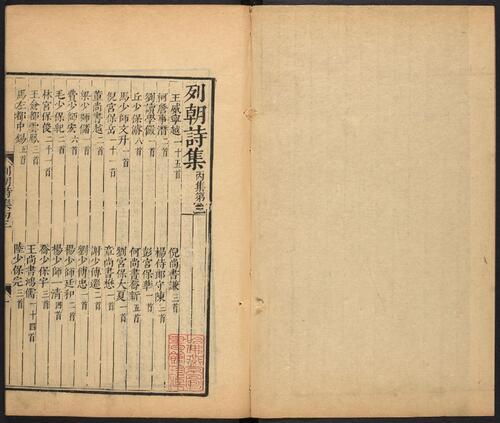 列朝詩集 丙集第三
王威寧越一十五首
倪尚書謙三首
何詹事潛二首
楊侍郎守陳二首
劉讀學儼一首
彭宮保華一首
丘少保濬八首
何尚書喬新五首
馬少師文升一首
劉宮保大夏一首
倪宮保岳二十一首
章尚書懋一首
董尚書越二首
謝少傅遷一首
梁少師儲一首
劉少傅忠一首
費少師宏六首
楊少師廷和二首
毛少保紀二首
楊少師一清四首
林宮保俊二十一首
喬少保宇三首
王僉都雲鳳三首
王尚書鴻儒一十四首
馬左都中錫五首
陸少保完三首
列朝詩集丙三